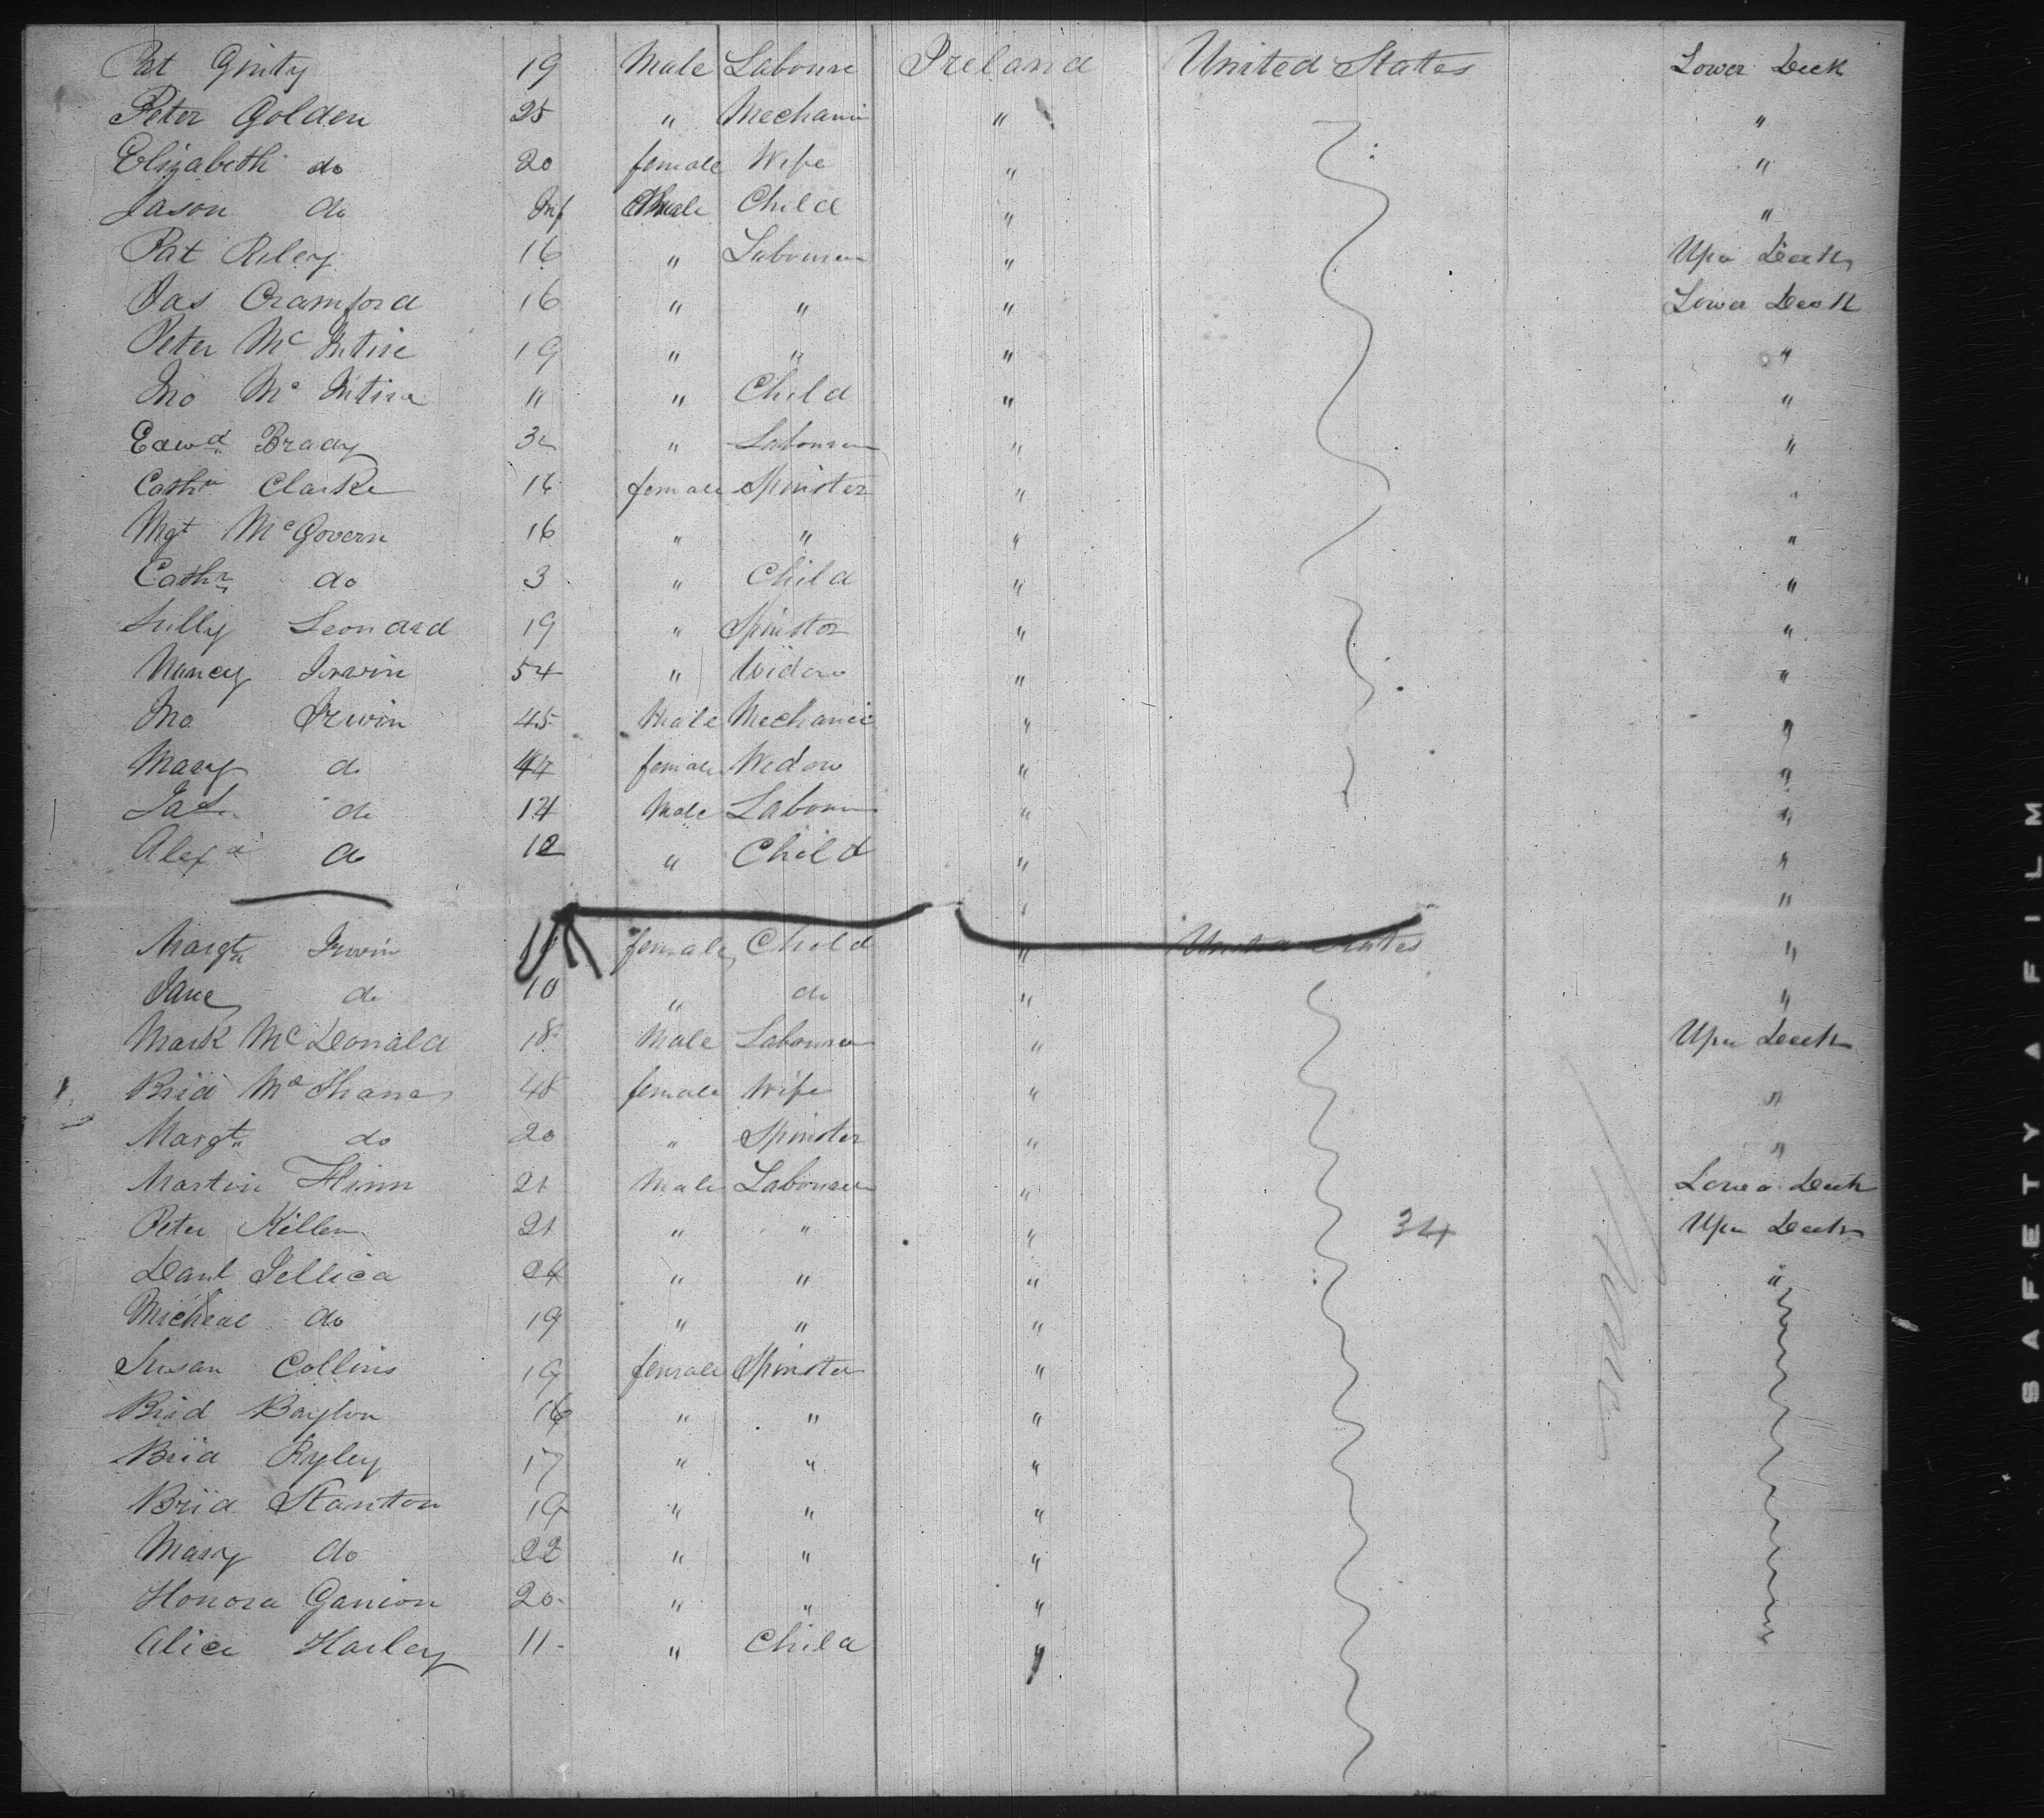 Pat Ginty 19 Male Laboure Ireland United States Lower Deck
Peter Golden 25 " Mechanic " "
Elizabeth do 20 female Wife " "
Jason do Inf Male Child " "
Pat Riley 16 " Labourer " Uper Deck
Jas Cramford 16 " " " Lower Deck
Peter Mc Intire 19 " " " "
Jno Mc Intire 11 " Child " "
Edwd Brady 32 " Labourer " "
Cathn Clarke 16 female Spinster " "
Mgt McGovern 16 " " " "
Cathn do 3 " Child " "
Leonard 19 " Spinster " "
Nancy Irwin 54 " Widow " "
Jno Irwin 45 Male Mechanic " "
Mary do 47 female Widow " "
Jas do 14 Male Labourer " "
Alexd do 12 " Child " "
" "
Margt Irwin female Child " United States "
Jane do 10 " do " "
Mark McDonald 18 Male Labourer " Uper Deck
Brid McShane 48 female Wife " "
Margt do 20 " Spinster " "
Martin Flinn 21 Male Labourer " Lower Deck
Peter Killen 21 " " " 34 Uper Deck
Danl Jellica 24 " " " "
Micheal do 19 " " "
Susan Collins 19 female Spinster "
Brid Boylon 16 " " "
Brid Ryley 17 " " "
Brid Stanton 19 " " "
Mary do 22 " " "
Honora Ganion 20 " " "
Alice Harley 11 " Child "
SAFETY A FILM